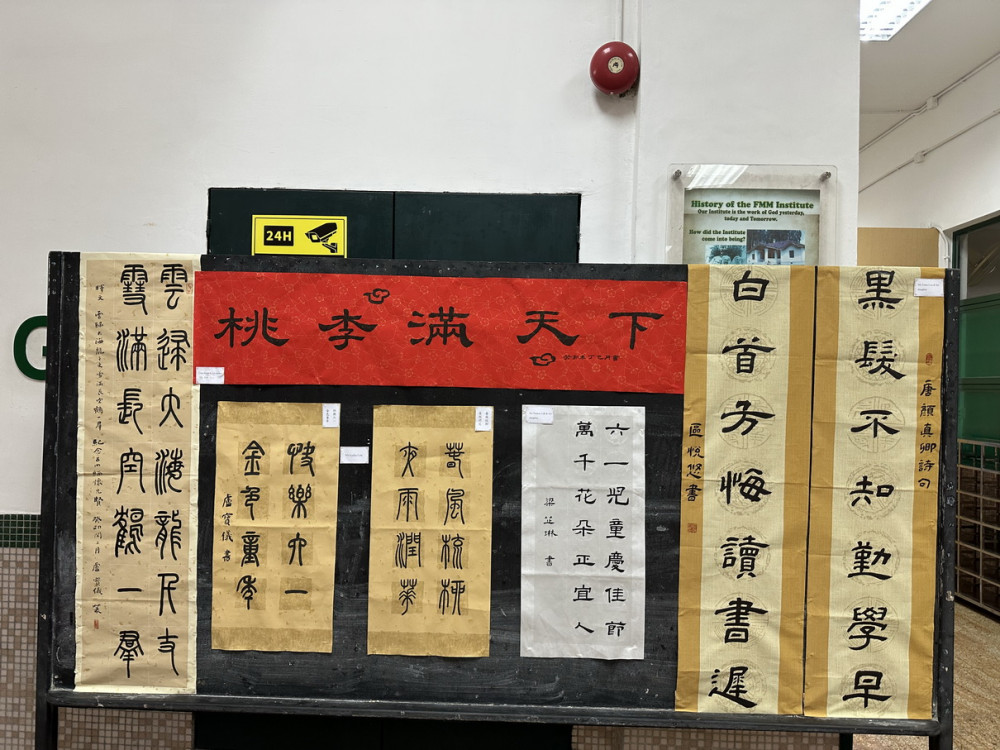 24H
History of the FMM Institute
Our Institute is the work of God yesterday,
today and Tomorrow.
How did the Institute
come into being?
桃李滿天下
黑髮不知勤學早
唐顏真卿詩句
白首方悔讀書遲
區悅悠書
六一兒童慶佳節
萬千花朵正宜人
梁芷琳 書
春風梳柳
夜雨潤華
快樂六一
金色童年
盧寶儀書
雲歸大海龍千丈
雪滿長空鶴一羣
釋文 雲歸大海龍千丈 雪滿長空鶴一群
G